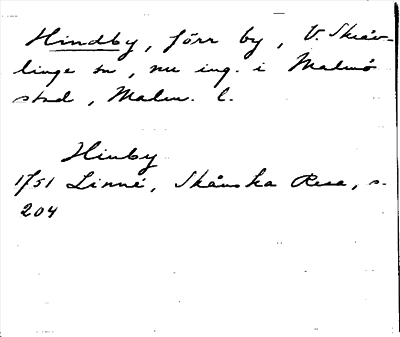 Hindby, förr by, V. Skräv-
linge sn, nu ing. i Malmö
stad, Malm. l.
Hinby
1751 Linné, Skånska Resa, s.
204